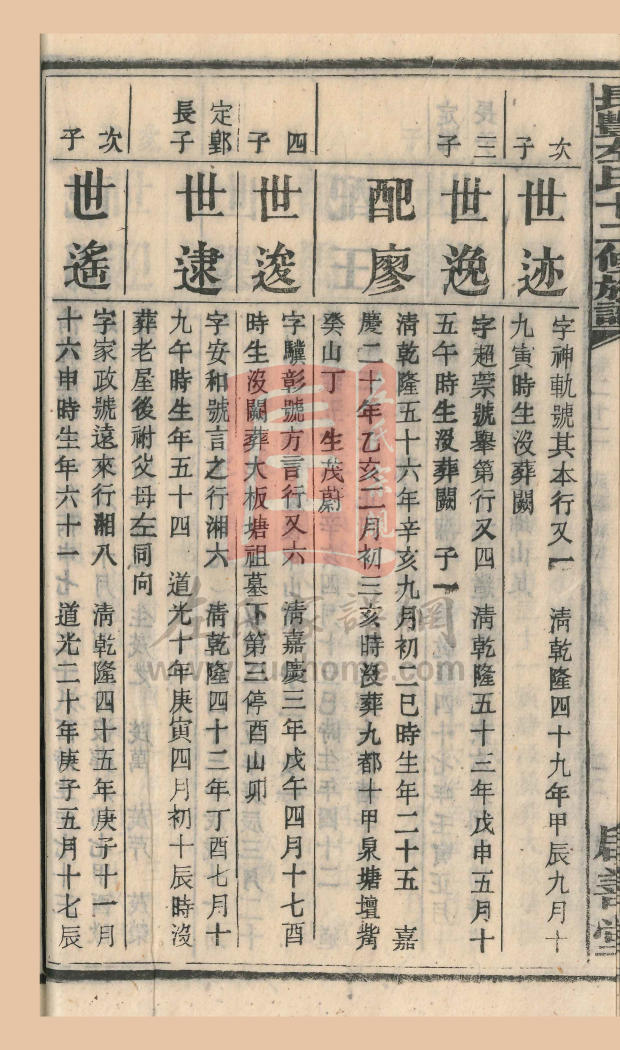 長豐左氏七二修族譜
次子
世迹
字神軌號其本行又一　清乾隆四十九年甲辰九月十
九寅時生沒葬闕
三子
世逸
字超萗號舉第行又四　清乾隆五十三年戊申五月十
五午時生沒葬闕　子一
配廖
清乾隆五十六年辛亥九月初二巳時生年二十五　嘉
慶二十年乙亥二月初三亥時沒葬九都十甲泉塘壇嘴
癸山丁　生茂蔚
四子
世逡
字驥彰號方言行又六　清嘉慶三年戊午四月十七酉
時生沒闕葬大板塘祖墓下第三停酉山卯
定郢長子
世逮
字安和號言之行湘六　清乾隆四十三年丁酉七月十
九午時生年五十四　道光十年庚寅四月初十辰時沒
葬老屋後祔父母左同向
次子
世遙
字家政號遠來行湘八　清乾隆四十五年庚子十一月
十六申時生年六十一　道光二十年庚子五月十七辰
左氏家譜網
www.zuohome.com